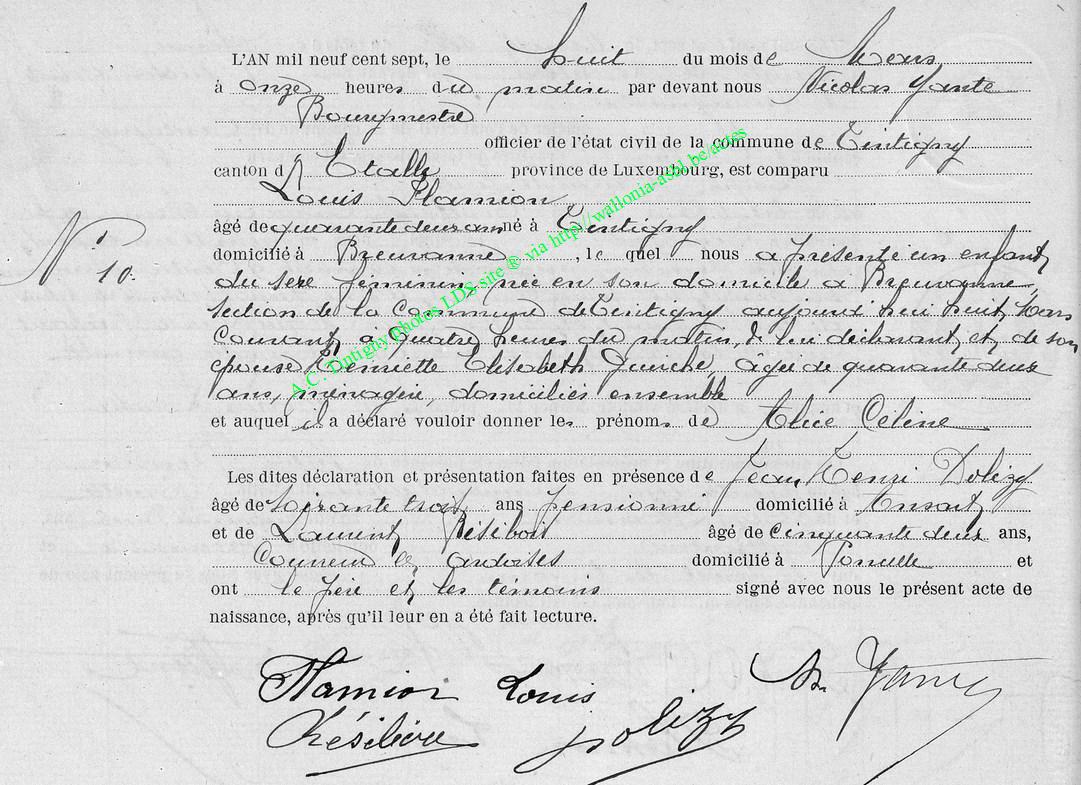 L'AN mil neuf cent sept, le huit du mois de Mars
à onze heures du matin par devant nous Nicolas Yante
Bourgmestre
officier de l'état civil de la commune de Tintigny
canton d' Etalle province de Luxembourg, est comparu
Louis Flamion
âgé de quarante deux ans né à Tintigny
domicilié à Breuvanne, lequel nous a présenté un enfant
N° 10.
du sexe féminin née en son domicile à Breuvanne,
section de la commune de Tintigny aujourd'hui huit Mars
courant, à quatre heures du matin, de lui déclarant et de son
épouse Henriette Elisabeth âgée de quarante deux
ans, ménagère, domiciliés ensemble
et auquel il a déclaré vouloir donner les prénoms de Alice Céline
Les dites déclaration et présentation faites en présence de Jean Henri Dolizy
âgé de soixante trois ans pensionné domicilié à Ansart
et de Laurent âgé de cinquante deux ans,
couvreur en ardoises domicilié à et
ont le père et les témoins signé avec nous le présent acte de
naissance, après qu'il leur en a été fait lecture.
Flamion Louis N. Yante
Dolizy
A.C. Tintigny photos LDS site ® via http://wallonia-asbl.be/actes